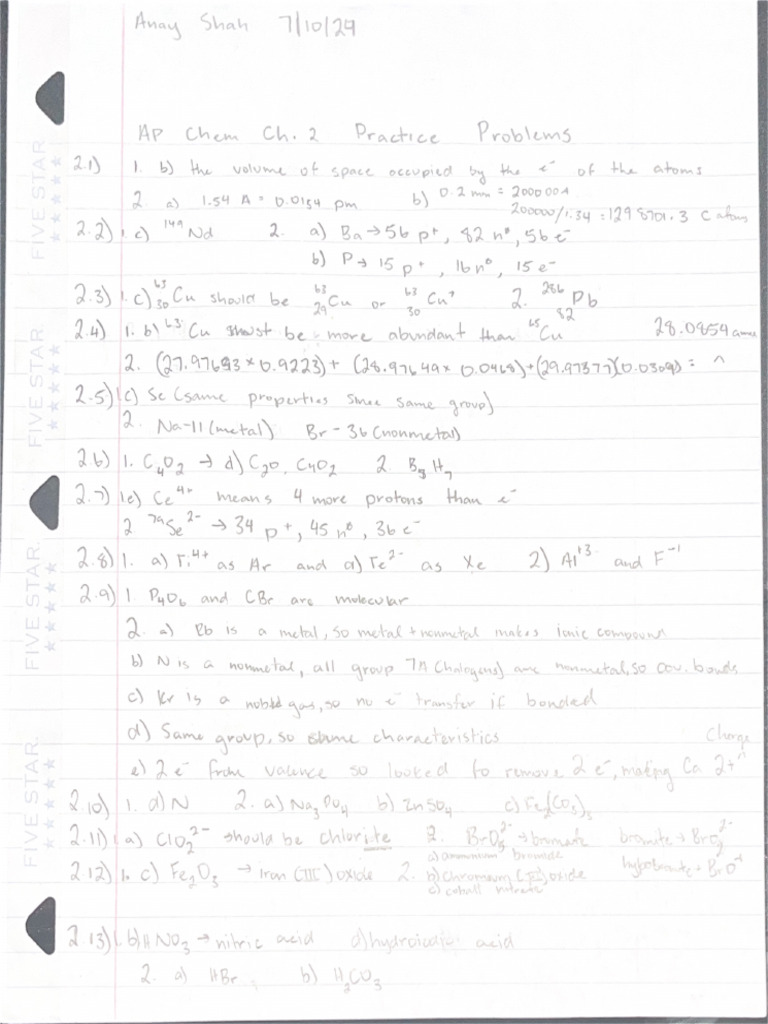 Anay Shah 7/10/24
AP Chem Ch. 2 Practice Problems
2.1) 1. b) the volume of space occupied by the e⁻ of the atoms
2. a) 1.54 A = 0.0154 pm b) 0.2 mm = 200000A
200000/1.34 = 1298701.3 C atoms
2.2) 1. c) ¹⁴⁹Nd 2. a) Ba → 56 p⁺, 82 n⁰, 56 e⁻
b) P → 15 p⁺, 16 n⁰, 15 e⁻
2.3) 1. c) ⁶³₃₀Cu should be ⁶³₂₉Cu or ⁶³₃₀Cu⁺ 2. ²⁸⁶₈₂Pb
2.4) 1. b) ⁶³Cu must be more abundant than ⁶⁵Cu 28.0854 amu
2. (27.97693 × 0.9223) + (28.97649 × 0.0468) + (29.97377)(0.0309) = ^
2.5) 1c) Se (same properties since same group)
2. Na-11 (metal) Br-36 (nonmetal)
2.6) 1. C₄O₂ → d) C₂O, C₄O₂ 2. B₅H₇
2.7) 1e) Ce⁴⁺ means 4 more protons than e⁻
2 ⁷⁹Se²⁻ → 34 p⁺, 45 n⁰, 36 e⁻
2.8) 1. a) Ti⁴⁺ as Ar and a) Te²⁻ as Xe 2) Al⁺³ and F⁻¹
2.9) 1. P₄O₆ and CBr are molecular
2. a) Rb is a metal, so metal + nonmetal makes ionic compound
b) N is a nonmetal, all group 7A (halogens) are nonmetal, so cov. bonds
c) Kr is a noble gas, so no e⁻ transfer if bonded
d) Same group, so same characteristics Charge
e) 2 e⁻ from valence so looked to remove 2 e⁻, making Ca 2+ ^
2.10) 1. d) N 2. a) Na₃PO₄ b) ZnSO₄ c) Fe₂(CO₃)₃
2.11) 1. a) ClO₂²⁻ should be chlorite 2. → bromate bromite → BrO₂²⁻
a) ammonium bromide hypobromite → BrO⁻¹
2.12) 1. c) Fe₂O₃ → iron (III) oxide 2. b) chromium (III) oxide
c) cobalt nitrate
2.13) 1. b) HNO₃ → nitric acid d) hydroiodic acid
2. a) HBr b) H₂CO₃
FIVE STAR
FIVE STAR.
FIVE STAR.
FIVE STAR.